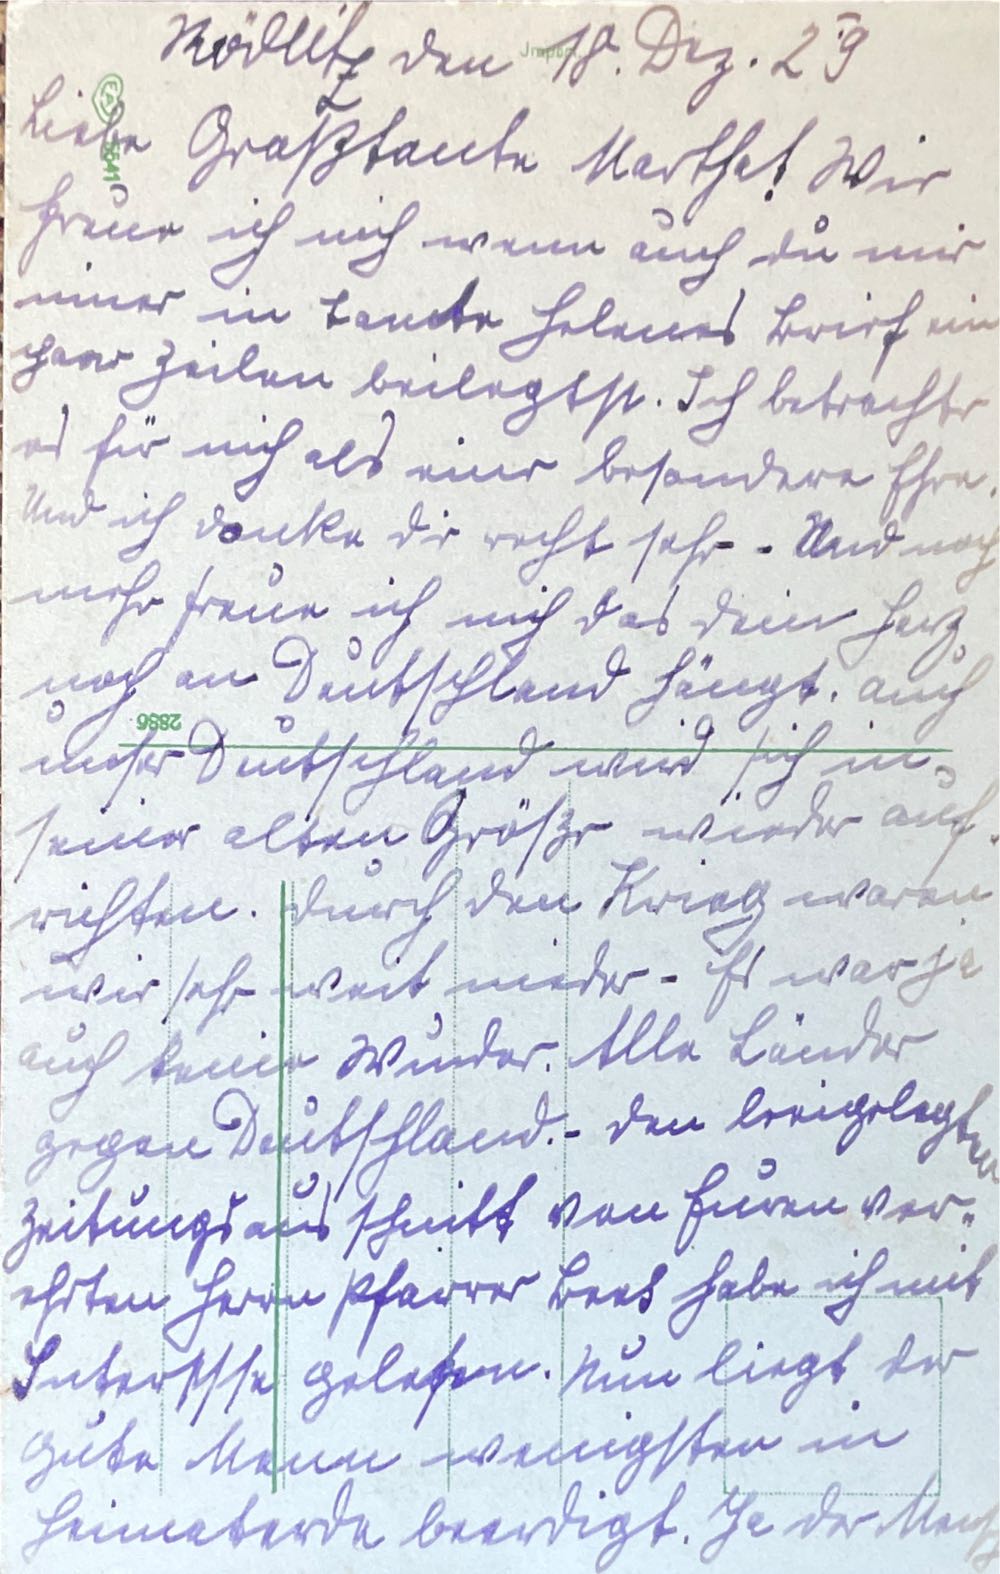 Rödlitz den 18. Dez. 29
Import
Liebe Großtante Martha! Wie
5541
freue ich mich wenn auch du mir
immer in Tante Helenes Brief ein
paar Zeilen beilegtst. Ich betrachte
es für mich als eine besondere Ehre.
Und ich danke dir recht sehr. Und noch
mehr freue ich mich das dein Herz
noch an Deutschland hängt. auch
2886
unser Deutschland wird sich in
seiner alten Größe wieder auf-
richten. durch den Krieg waren
wir sehr weit nieder - Es war ja
auch keine Wunder. Alle Länder
gegen Deutschland. - den beigelegten
Zeitungsausschnitt von Euren ver-
ehrten Herrn Pfarrer habe ich mit
Interesse gelesen. Nun liegt der
gute Mann wenigsten in
Heimaterde beerdigt. Ja der Mensch